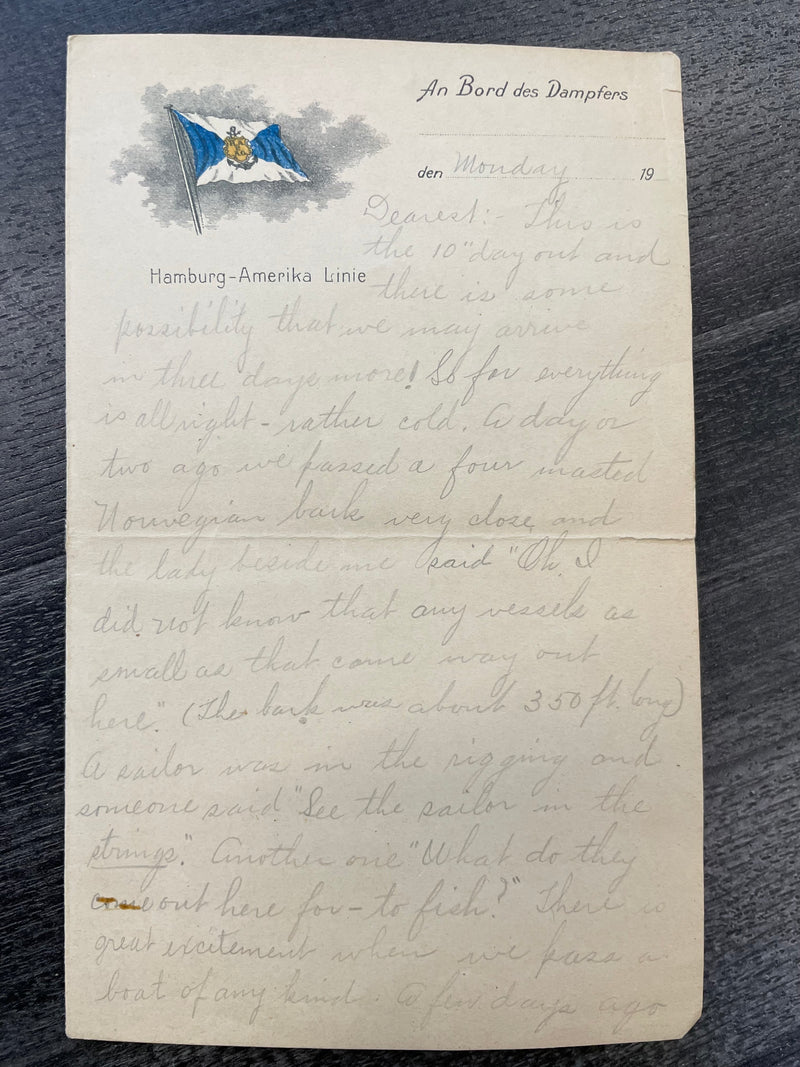 An Bord des Dampfers
den Monday 19
Hamburg-Amerika Linie
Dearest:- This is
the 10" day out and
there is some
possibility that we may arrive
in three days more! So far everything
is all right - rather cold. A day or
two ago we passed a four masted
Norwegian bark very close and
the lady beside me said "Oh I
did not know that any vessels as
small as that came way out
here." (The bark was about 350 ft. long)
A sailor was in the rigging and
someone said "See the sailor in the
strings." Another one "What do they
come out here for - to fish?" There is
great excitement when we pass a
boat of any kind. A few days ago